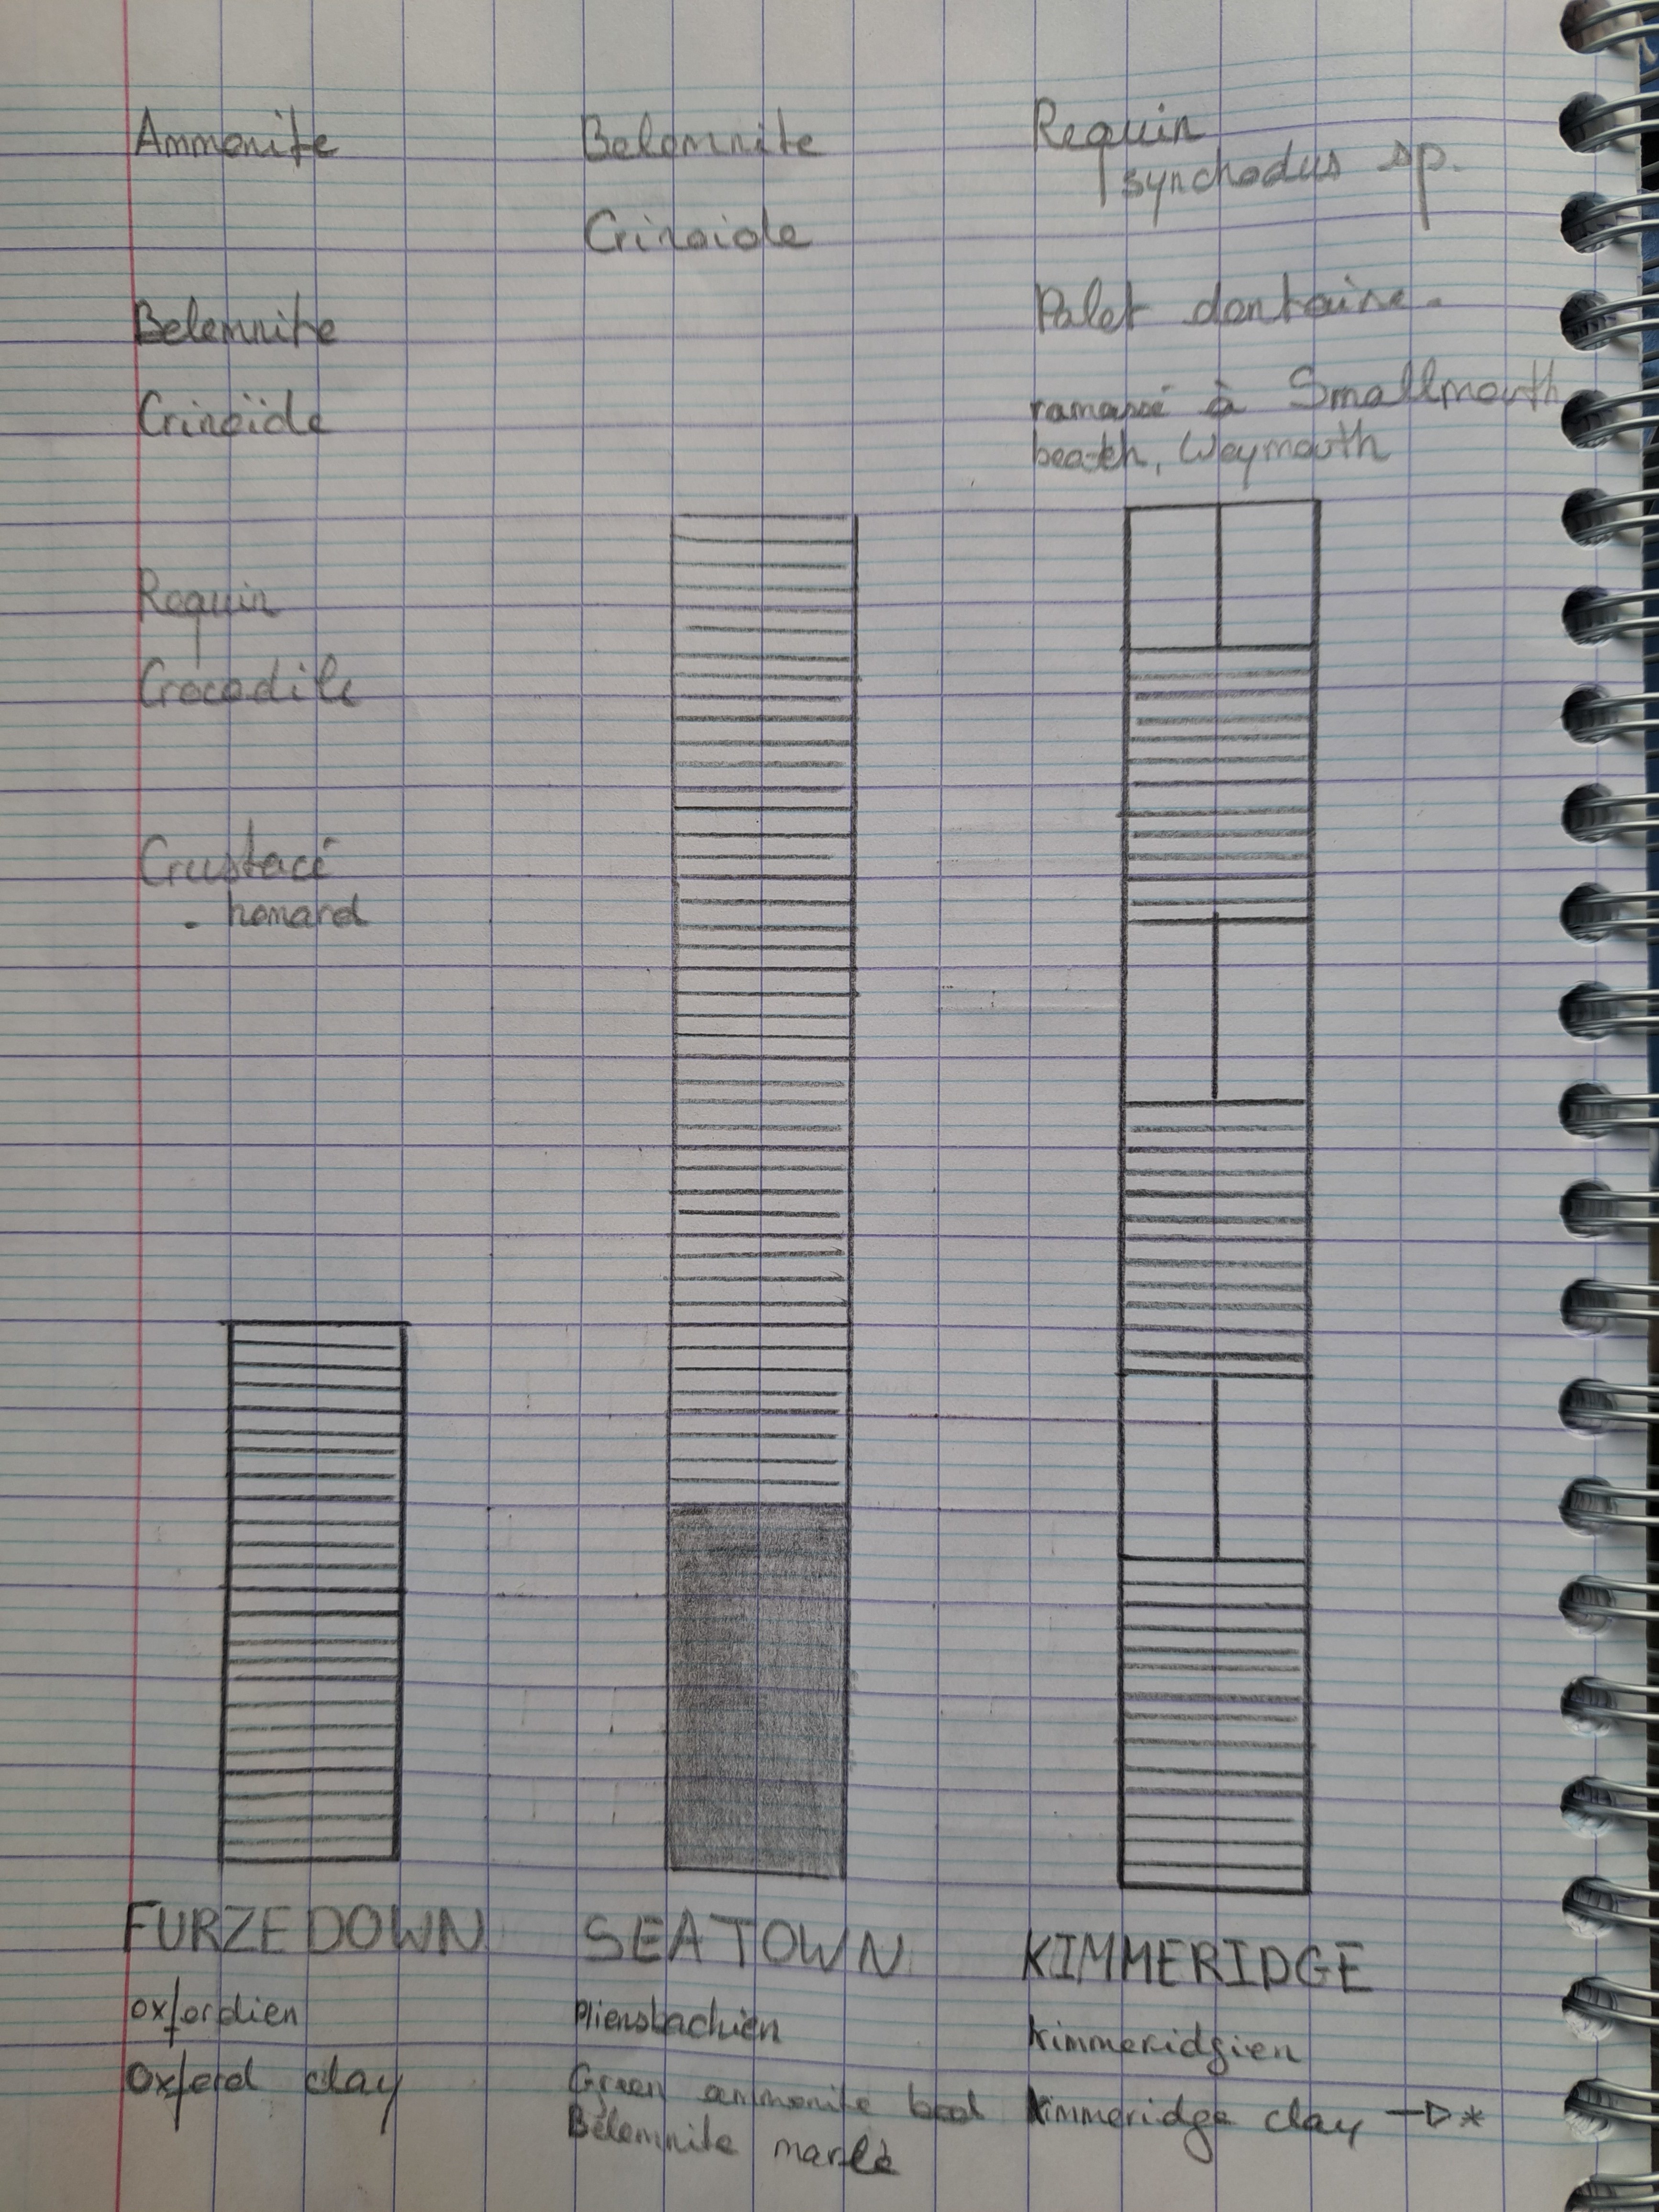 Ammonite
Belemnite
Crinoïde
Requin
Crocodile
Crustacé
- homard
FURZEDOWN
oxfordien
Oxford clay
Belemnite
Crinoide
SEATOWN
Pliensbachien
Green ammonite bed
Bélemnite marlè
Requin
synchodus sp.
Palet dentaire.
ramassé à Smallmouth
beach, Weymouth
KIMMERIDGE
Kimmeridgien
Kimmeridge clay → *